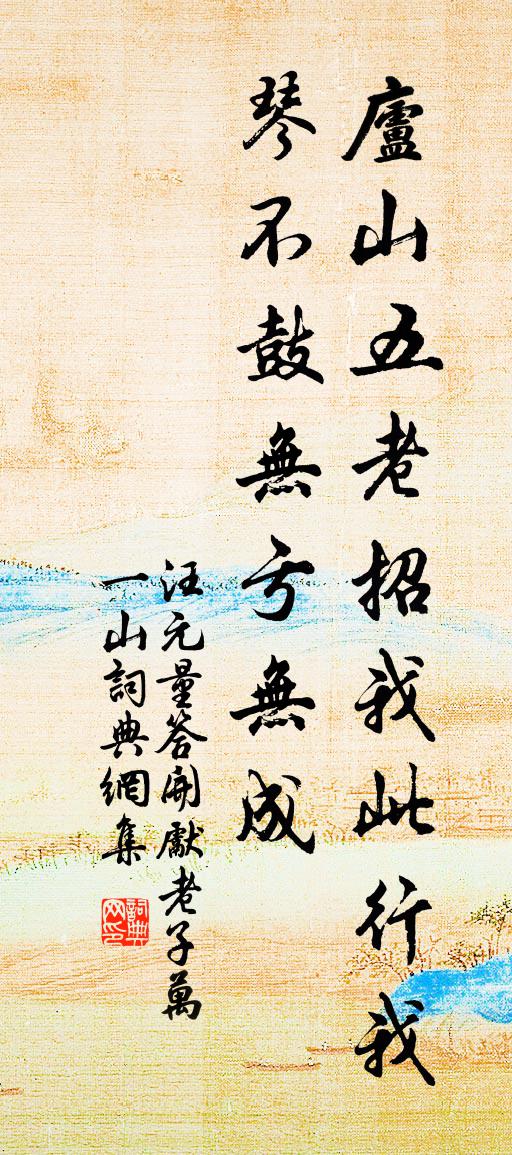 廬山五老招我此行我
琴不鼓無亏無成
汪元量答開獻老子萬
一山詞典網集
詞典
网印